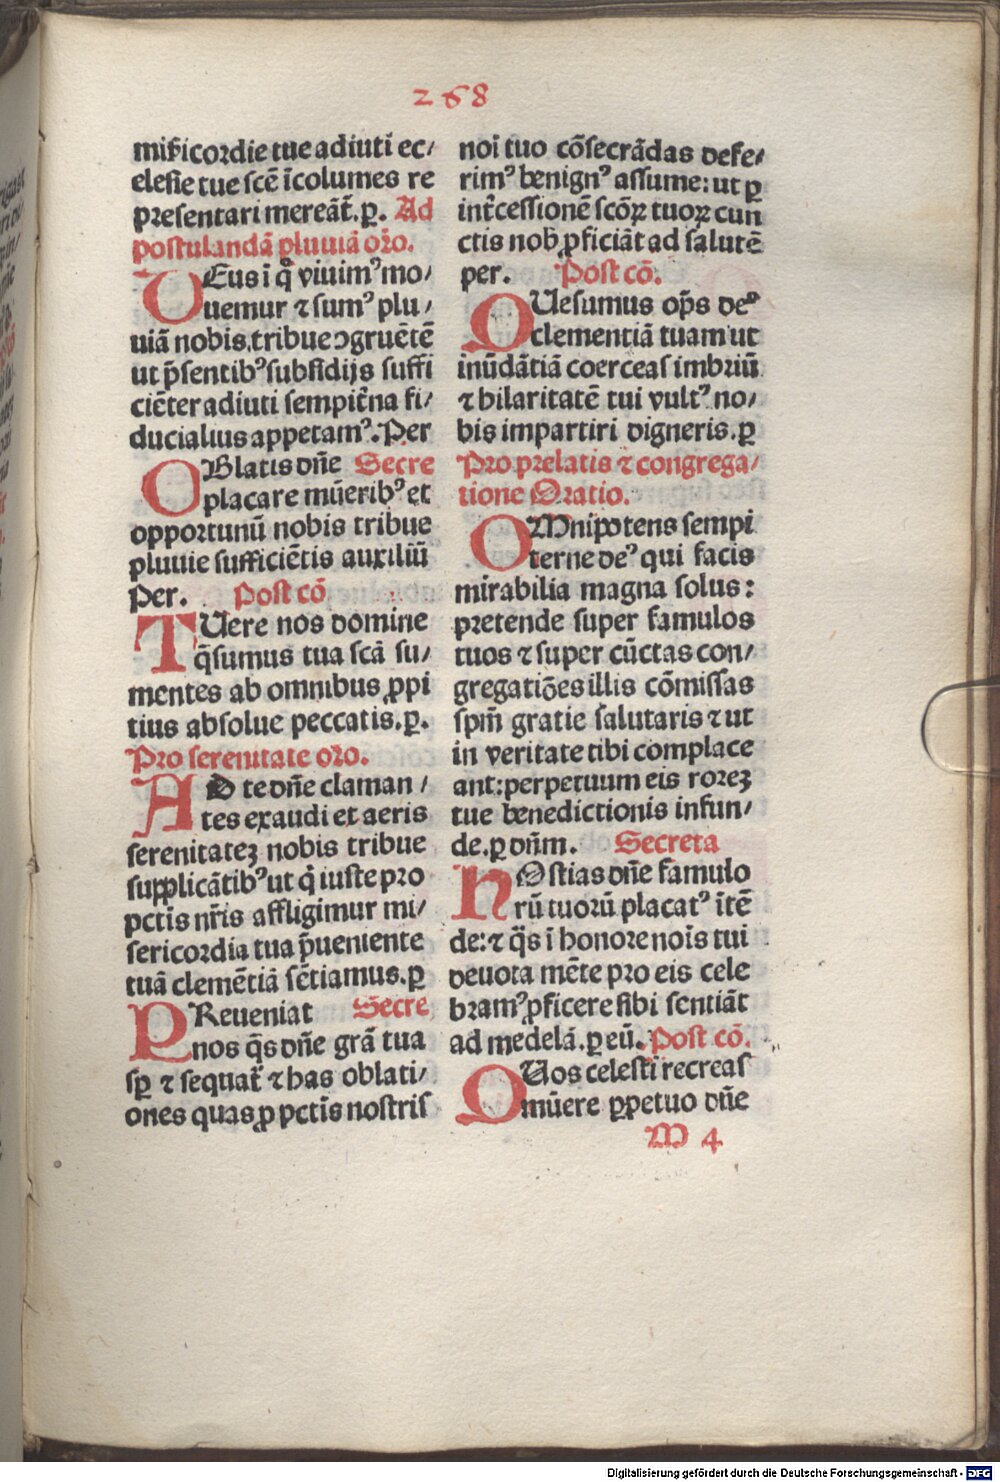 268
miẜicordie tue adiuti ec/
clesie tue scē īcolumes re
presentari mereāt̄.ꝑ. Ad
postulandā pluuiā oꝛō.
DEus ī q̄ viuim⁹ mo/
uemur ⁊ sum⁹ plu/
uiā nobis.tribue ↄgruētē
ut p̄sentib⁹ subsidijs suffi
ciēter adiuti sempit̄na fi/
ducialius appetam⁹. Per
OBlatis dn̄e Secre
placare mūerib⁹ et
oppoꝛtunū nobis tribue
pluuie sufficiētis auxiliū
Per. Post cō
TUere nos domine
q̄sumus tua scā su/
mentes ab omnibus ꝓpi
tius absolue peccatis.ꝑ.
Pro serenitate oꝛo.
AD te dn̄e claman/
tes exaudi et aeris
serenitateꝫ nobis tribue
supplicātib⁹ ut q̄ iuste pꝛo
pctīs nr̄is affligimur mi/
sericoꝛdia tua p̄ueniente
tuā clemētiā sētiamus.ꝑ
PReueniat Secre
nos q̄s dn̄e grā tua
sꝑ ⁊ sequat̄ ⁊ has oblati/
ones quas ꝓ pctīs nostris
noī tuo cōsecrādas defe/
rim⁹ benign⁹ assume: ut ꝑ
int̄cessionē scōꝝ tuoꝝ cun
ctis nob̄ ꝓficiāt ad salutē
per. Post cō.
QUesumus op̄s de⁹
clementiā tuam ut
inūdātiā coerceas imbriū
⁊ hilaritatē tui vult⁹ no/
bis impartiri digneris.ꝑ
Pro prelatis ⁊ congrega/
tione Oratio.
OMnipotens sempi
terne de⁹ qui facis
mirabilia magna solus:
pretende super famulos
tuos ⁊ super cūctas con/
gregatiōes illis cōmissas
spm̄ gratie salutaris ⁊ ut
in veritate tibi complace
ant: perpetuum eis roreꝫ
tue benedictionis infun/
de.ꝑ dn̄m. Secreta
HOstias dn̄e famulo
rū tuorū placat⁹ ītē
de: ⁊ q̄s ī honoꝛe noīs tui
deuota mēte pꝛo eis cele
bram⁹ ꝓficere sibi sentiāt
ad medelā.ꝑ eū. Post cō.
QUos celesti recreas
mūere ꝑpetuo dn̄e
M 4
Digitalisierung gefördert durch die Deutsche Forschungsgemeinschaft - DFG